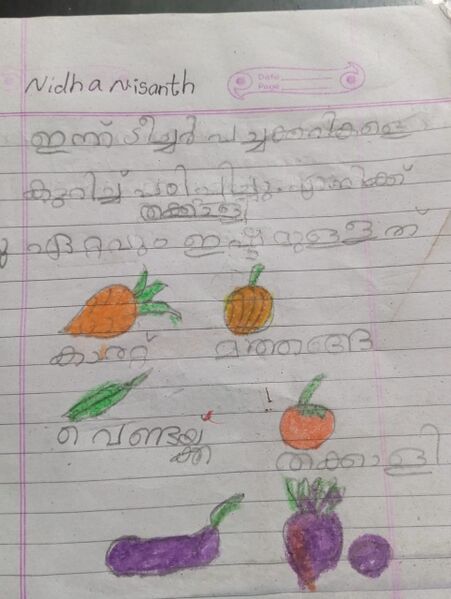 Nidha Nisanth
Date
Page
ഇന്ന് ടീച്ചർ പച്ചക്കറികളെ
കുറിച്ച് പഠിപ്പിച്ചു. എനിക്ക്
തക്കാളി
ഏറ്റവും ഇഷ്ടമുള്ളത്
കാരറ്റ് മത്തങ്ങ
വെണ്ടയ്ക്ക
തക്കാളി